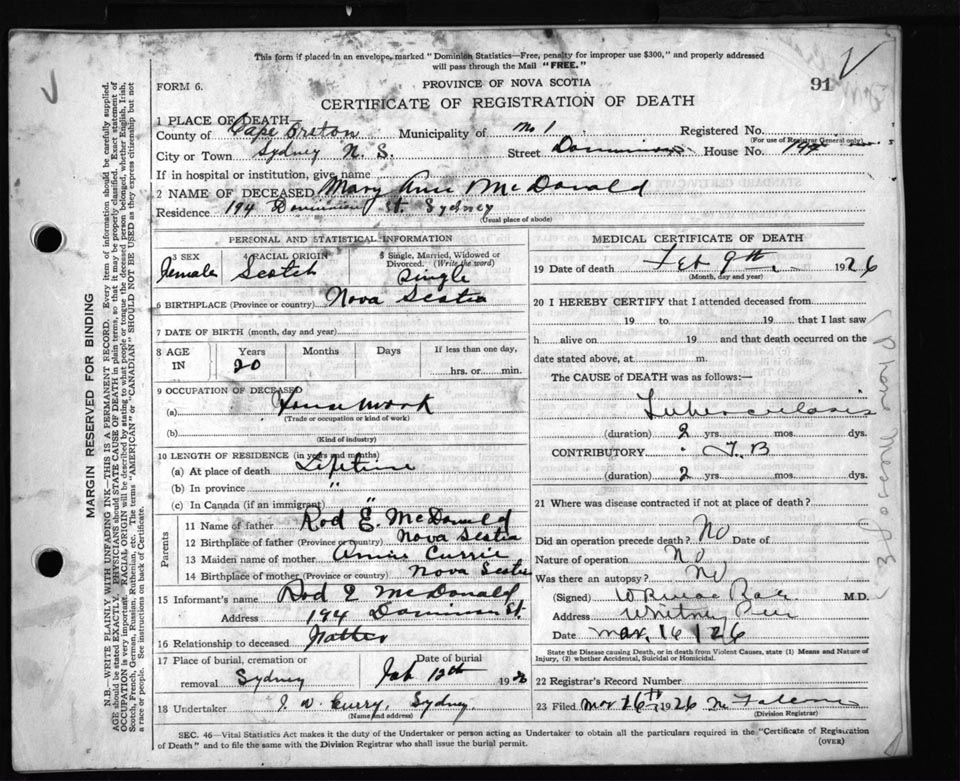 This form if placed in an envelope, marked "Dominion Statistics—Free, penalty for improper use $300," and properly addressed
will pass through the Mail "FREE."
FORM 6.
PROVINCE OF NOVA SCOTIA
91
CERTIFICATE OF REGISTRATION OF DEATH
1 PLACE OF DEATH
County of Cape Breton Municipality of No 1 Registered No.
(For use of Registrar General only)
City or Town Sydney N. S. Street Dominion House No. 194
If in hospital or institution, give name
2 NAME OF DECEASED Mary Ann McDonald
Residence 194 Dominion St. Sydney
(Usual place of abode)
PERSONAL AND STATISTICAL INFORMATION
3 SEX 4 RACIAL ORIGIN 5 Single, Married, Widowed or Divorced. (Write the word)
Female Scotch Single
6 BIRTHPLACE (Province or country) Nova Scotia
7 DATE OF BIRTH (month, day and year)
8 AGE IN Years Months Days If less than one day,
20 hrs. or min.
9 OCCUPATION OF DECEASED
(a) Housework
(Trade or occupation or kind of work)
(b)
(Kind of industry)
10 LENGTH OF RESIDENCE (in years and months)
(a) At place of death Lifetime
(b) In province "
(c) In Canada (if an immigrant) "
Parents
11 Name of father Rod E. McDonald
12 Birthplace of father (Province or country) Nova Scotia
13 Maiden name of mother Annie Currie
14 Birthplace of mother (Province or country) Nova Scotia
15 Informant's name Rod E McDonald
Address 194 Dominion St.
16 Relationship to deceased Father
17 Place of burial, cremation or removal Sydney Date of burial Feb 12th 1926
18 Undertaker J. W. Curry, Sydney.
(Name and address)
MEDICAL CERTIFICATE OF DEATH
19 Date of death Feb 9th 1926
(Month, day and year)
20 I HEREBY CERTIFY that I attended deceased from
19 to 19 that I last saw
h alive on 19 and that death occurred on the
date stated above, at m.
The CAUSE of DEATH was as follows:—
Tuberculosis
(duration) 2 yrs. mos. dys.
CONTRIBUTORY T. B
(duration) 2 yrs. mos. dys.
21 Where was disease contracted if not at place of death?
Did an operation precede death? No Date of
Nature of operation No
Was there an autopsy? No
(Signed) M.D.
Address Whitney Pier
Date Mar. 16/26
State the Disease causing Death, or in death from Violent Causes, state (1) Means and Nature of
Injury, (2) whether Accidental, Suicidal or Homicidal.
22 Registrar's Record Number
23 Filed Mar 16th 1926
(Division Registrar)
SEC. 46—Vital Statistics Act makes it the duty of the Undertaker or person acting as Undertaker to obtain all the particulars required in the "Certificate of Registration
of Death" and to file the same with the Division Registrar who shall issue the burial permit.
(OVER)
MARGIN RESERVED FOR BINDING
N.B.—WRITE PLAINLY WITH UNFADING INK—THIS IS A PERMANENT RECORD. Every item of information should be carefully supplied.
AGE should be stated EXACTLY. PHYSICIANS should STATE CAUSE OF DEATH in plain terms, so that it may be properly classified. Exact statement of
OCCUPATION is very important. RACIAL ORIGIN will be described by stating to what people or tongue the deceased person belonged, whether English, Irish,
Scotch, French, German, Russian, Ruthenian, etc. The terms "AMERICAN" or "CANADIAN" SHOULD NOT BE USED as they express citizenship but not
a race or people. See instructions on back of Certificate.